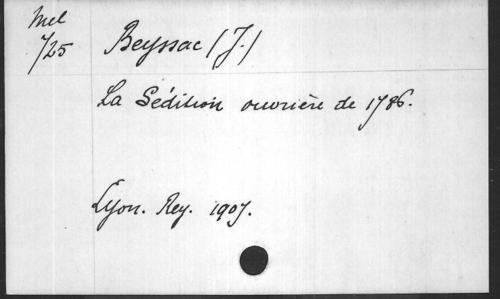 Mel
725
Beyssac (J.)
La Sédition ouvrière de 1786.
Lyon. Rey. 1907.